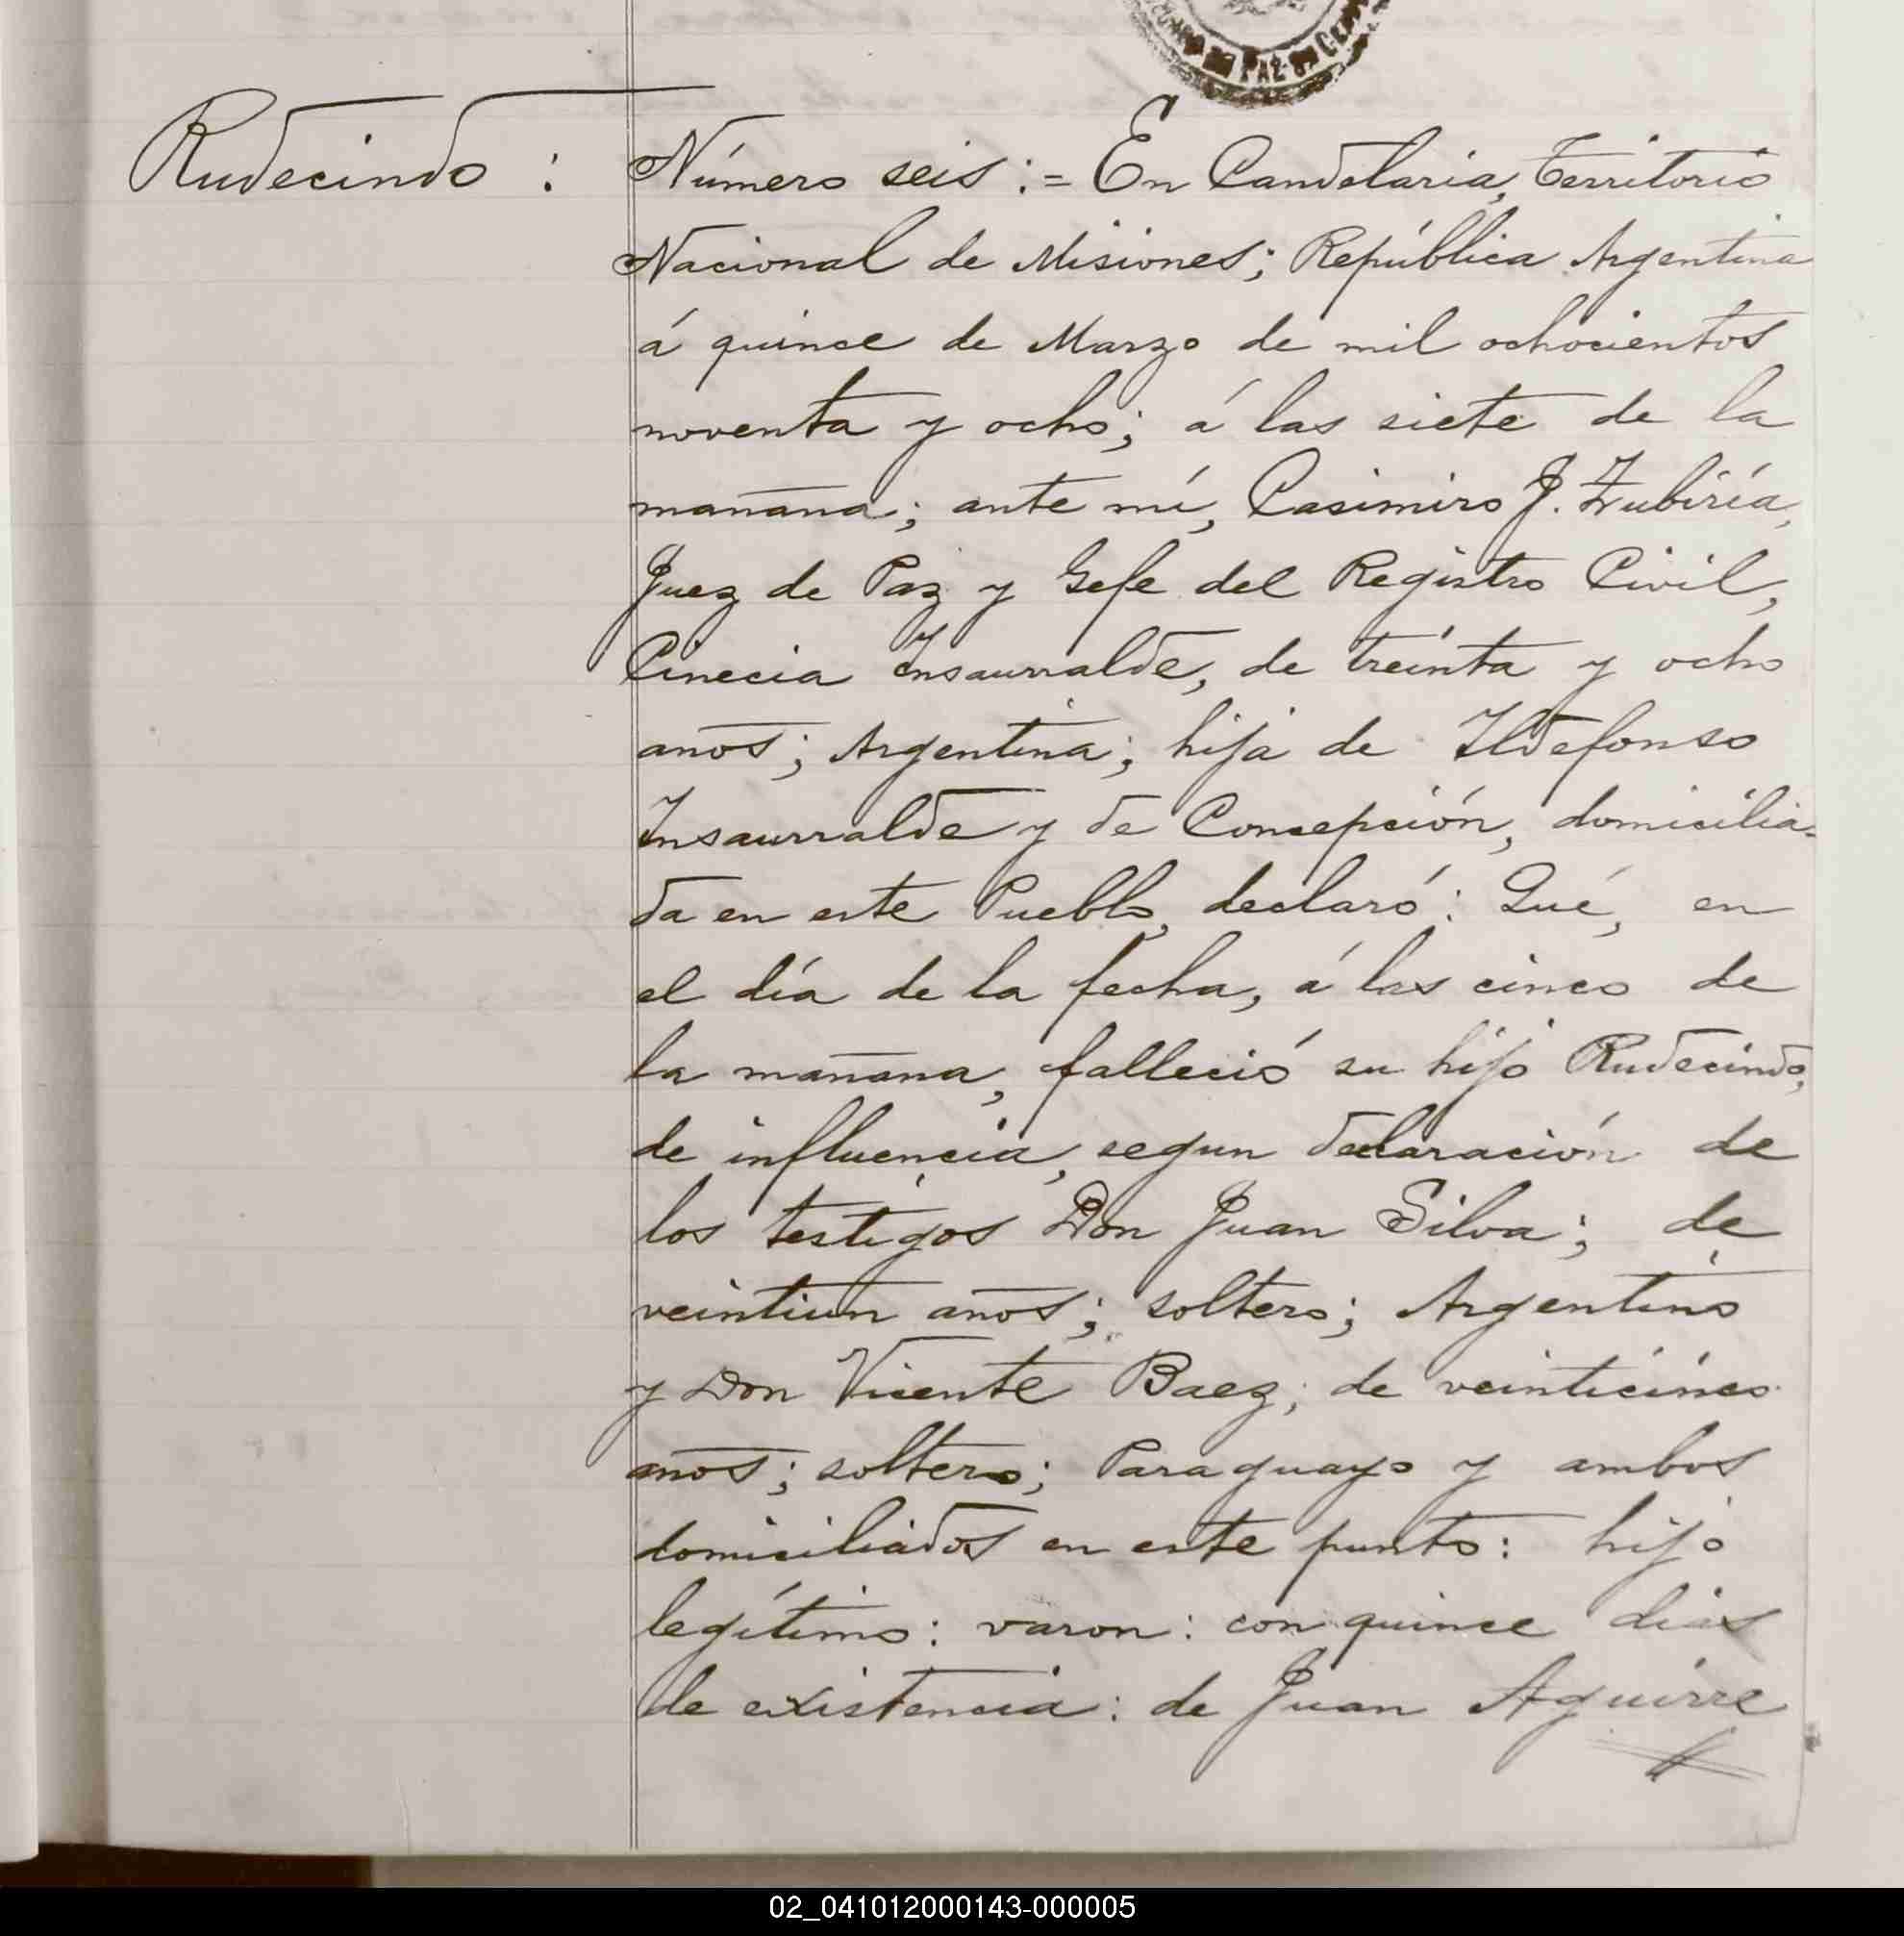 PAZ
Rudecindo :
Número seis :=En Candelaria, Territorio
Nacional de Misiones; República Argentina
á quince de Marzo de mil ochocientos
noventa y ocho; á las siete de la
mañana; ante mí, Casimiro J. Zubiría,
Juez de Paz y Gefe del Registro Civil,
Cinecia Insaurralde, de treinta y ocho
años; Argentina; hija de Ildefonso
Insaurralde y de Concepción, domicilia-
da en este Pueblo, declaró: Qué, en
el día de la fecha, á las cinco de
la mañana, falleció su hijo Rudecindo,
de influencia, segun declaración de
los testigos Don Juan Silva; de
veintiun años; soltero; Argentino
y Don Vicente Baez; de veinticinco
años; soltero; Paraguayo y ambos
domiciliados en este punto: hijo
legítimo: varon: con quince dias
de existencia: de Juan Aguirre
02_041012000143-000005